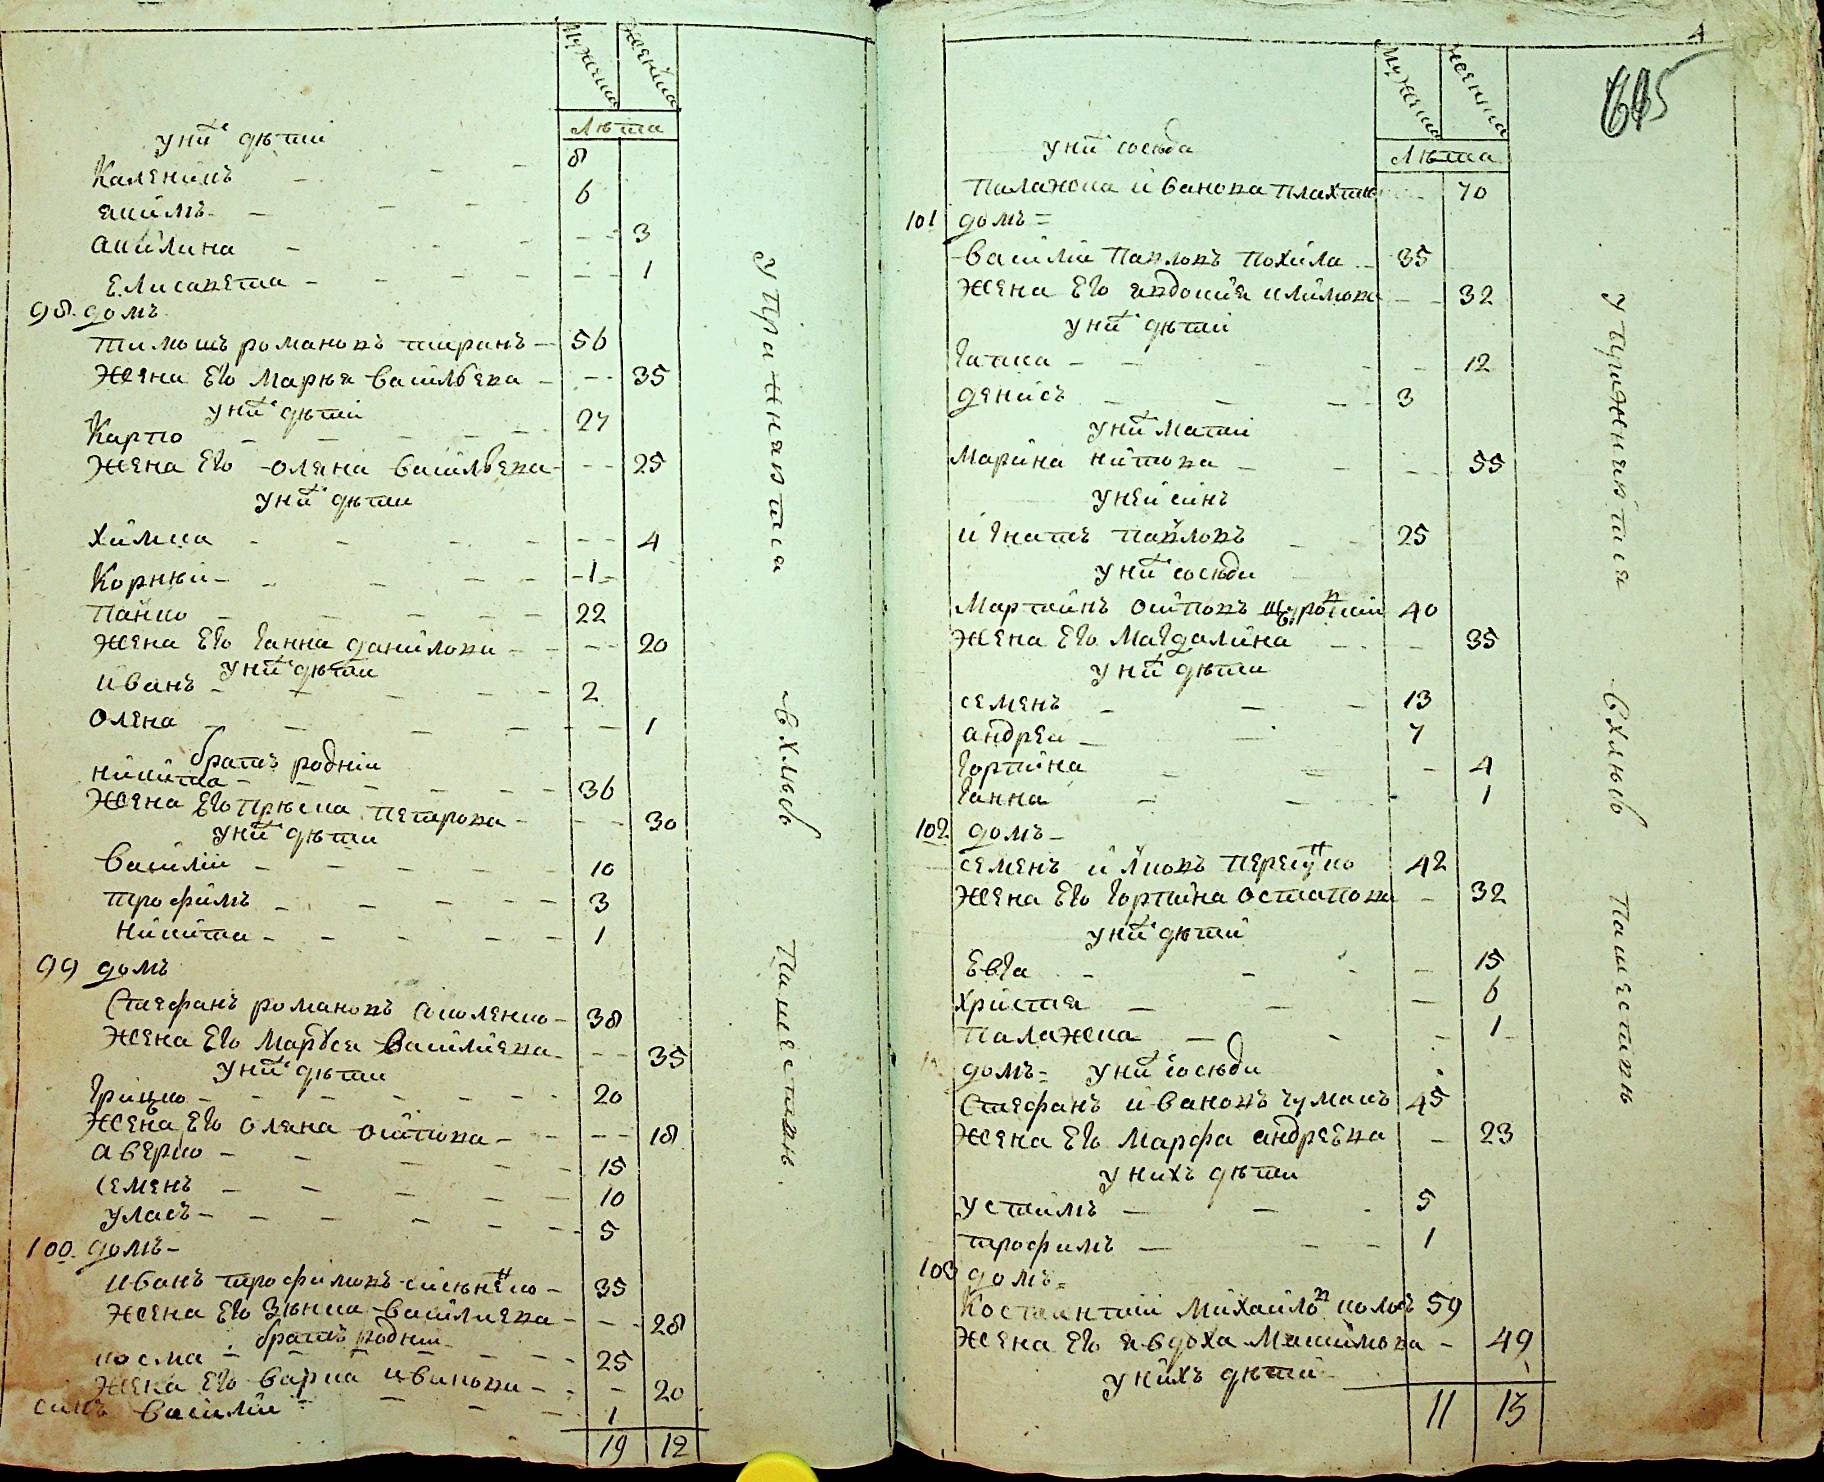 Мужеска Женска
Лѣта
у нихъ дѣти
Каленикъ - - - 8
якимъ - - - - 6
акилина - - - - 3
Елисавета - - - - 1
98. домъ
тимошъ романовъ ширанъ - 56
жена Его Маря василѣева - - 35
у нихъ дѣти
Карпо - - - - - 27
жена Его Оляна василѣева - - 25
у нихъ дѣти
химка - - - - - 4
Корнѣй - - - - - 1 -
Панко - - - - 22
жена Его ганна данилова - - 20
у нихъ дѣти
иванъ - - - - - 2
Олена - - - - - 1
братъ роднїи
никита - - - - - 36
жена Его прѣска петрова - - 30
у нихъ дѣти
василїи - - - - - 10
трофимъ - - - - - 3
никита - - - - - 1
99 домъ
Стефанъ романовъ соколенко - 38
жена Его Маруся василиева - - 35
у нихъ дѣти
грицко - - - - - 20
жена Его Оляна осипова - - 18
аверко - - - - - 15
семенъ - - - - - 10
уласъ - - - - - 5
100. домъ -
иванъ трофимовъ - 35
жена Его Зѣнка василиева - - 28
братъ роднїи
косма - - - - - 25
жена Его варка иванова - - 20
синъ василїи - - - 1
19 12
у пражнявтця
в хлѣбо
пашествѣ
4
Мужеска Женска
Лѣта
у нихъ сосѣда
палажка иванова 70
101 домъ =
василїи павловъ похила - 35
жена Его явдокия климова - - 32
у нихъ дѣти
гапка - - - - 12
денисъ - - - - 3
у нихъ мати
Марина никтова - - - 55
у неи синъ
игнатъ павловъ - - 25
у нихъ сосѣди
Мартинъ осиповъ 40
жена Его Магдалина - - 35
у нихъ дѣти
семенъ - - - 13
андреи - - 7
горпина - - - 4
ганна - - - 1
102 домъ -
семенъ илковъ 42
жена Его горпина остапова - 32
у нихъ дѣти
Евга - - - - 15
христя - - - 6
палажка - - - 1
домъ = у нихъ сосѣди
Стефанъ ивановъ чумакъ 45
жена Его Марфа андреева - 23
у нихъ дѣти
устимъ - - - 5
трофимъ - - - 1
103 домъ =
Костантїи Михайловъ 59
жена Его явдоха Макимова - 49
у нихъ дѣти
11 13
у пражнявтця
в хлѣбо
пашествѣ